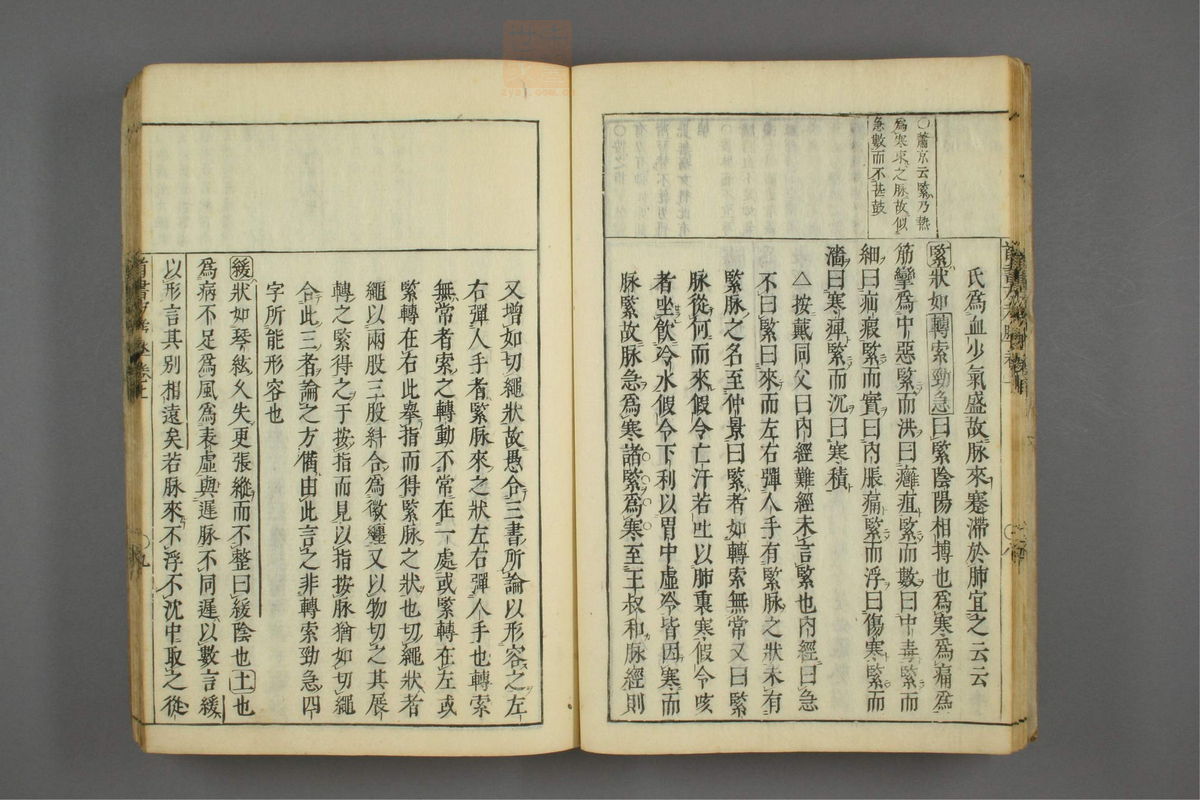 〇蕭京云緊乃熱
為寒束之脉故似
急數而不甚鼓
氏為血少氣盛故脉來蹇滯於肺宜之云云
緊狀如轉索勁急曰緊陰陽相搏也為寒為痛為
筋攣為中惡緊而洪曰癰疽緊而數曰中毒緊而
細曰疝瘕緊而實曰內脹痛緊而浮曰傷寒緊而
濇曰寒痺緊而沉曰寒積
△按戴同父曰內經難經未言緊也內經曰急
不曰緊曰來而左右彈人手有緊脉之狀未有
緊脉之名至仲景曰緊者如轉索無常又曰緊
脉從何而來假令亡汗若吐以肺裏寒假令咳
者坐飲冷水假令下利以胃中虛冷皆因寒而
脉緊故脉急為寒諸緊為寒至王叔和脉經則
又增如切繩狀故愚合三書所論以形容之左
右彈人手者緊脉來之狀左右彈人手也轉索
無常者索之轉動不常在一處或緊轉在左或
緊轉在右此舉指而得緊脉之狀也切繩狀者
繩以兩股三股糾合為徽纆又以物切之其展
轉之緊得之于按指而見以指按脉猶如切繩
合此三者論之方備由此言之非轉索勁急四
字所能形容也
緩狀如琴絃久失更張縱而不整曰緩陰也土也
為病不足為風為表虛與遲脉不同遲以數言緩
以形言其別相遠矣若脉來不浮不沈中取之從
九